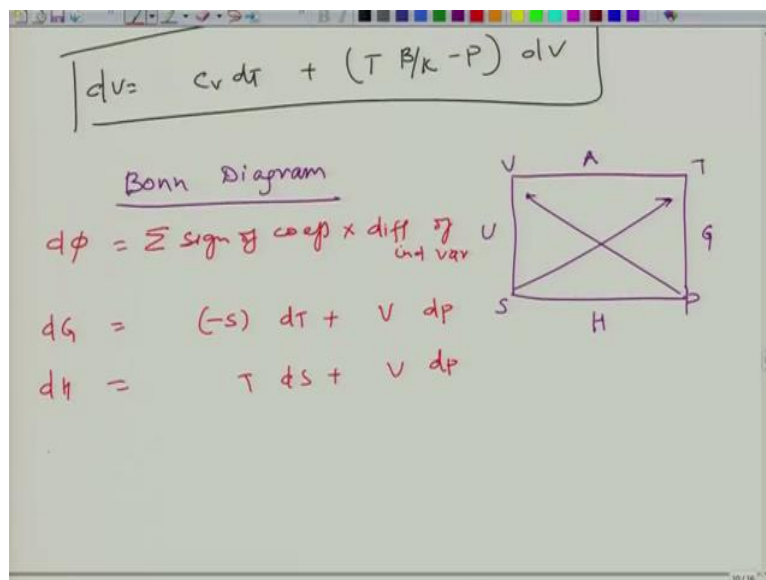 dU = Cv dT + (T β/κ - P) dV
Bonn Diagram
dφ = Σ sign of coeff × diff of ind var
dG = (-S) dT + V dP
dH = T dS + V dP
V A T
U G
S H P